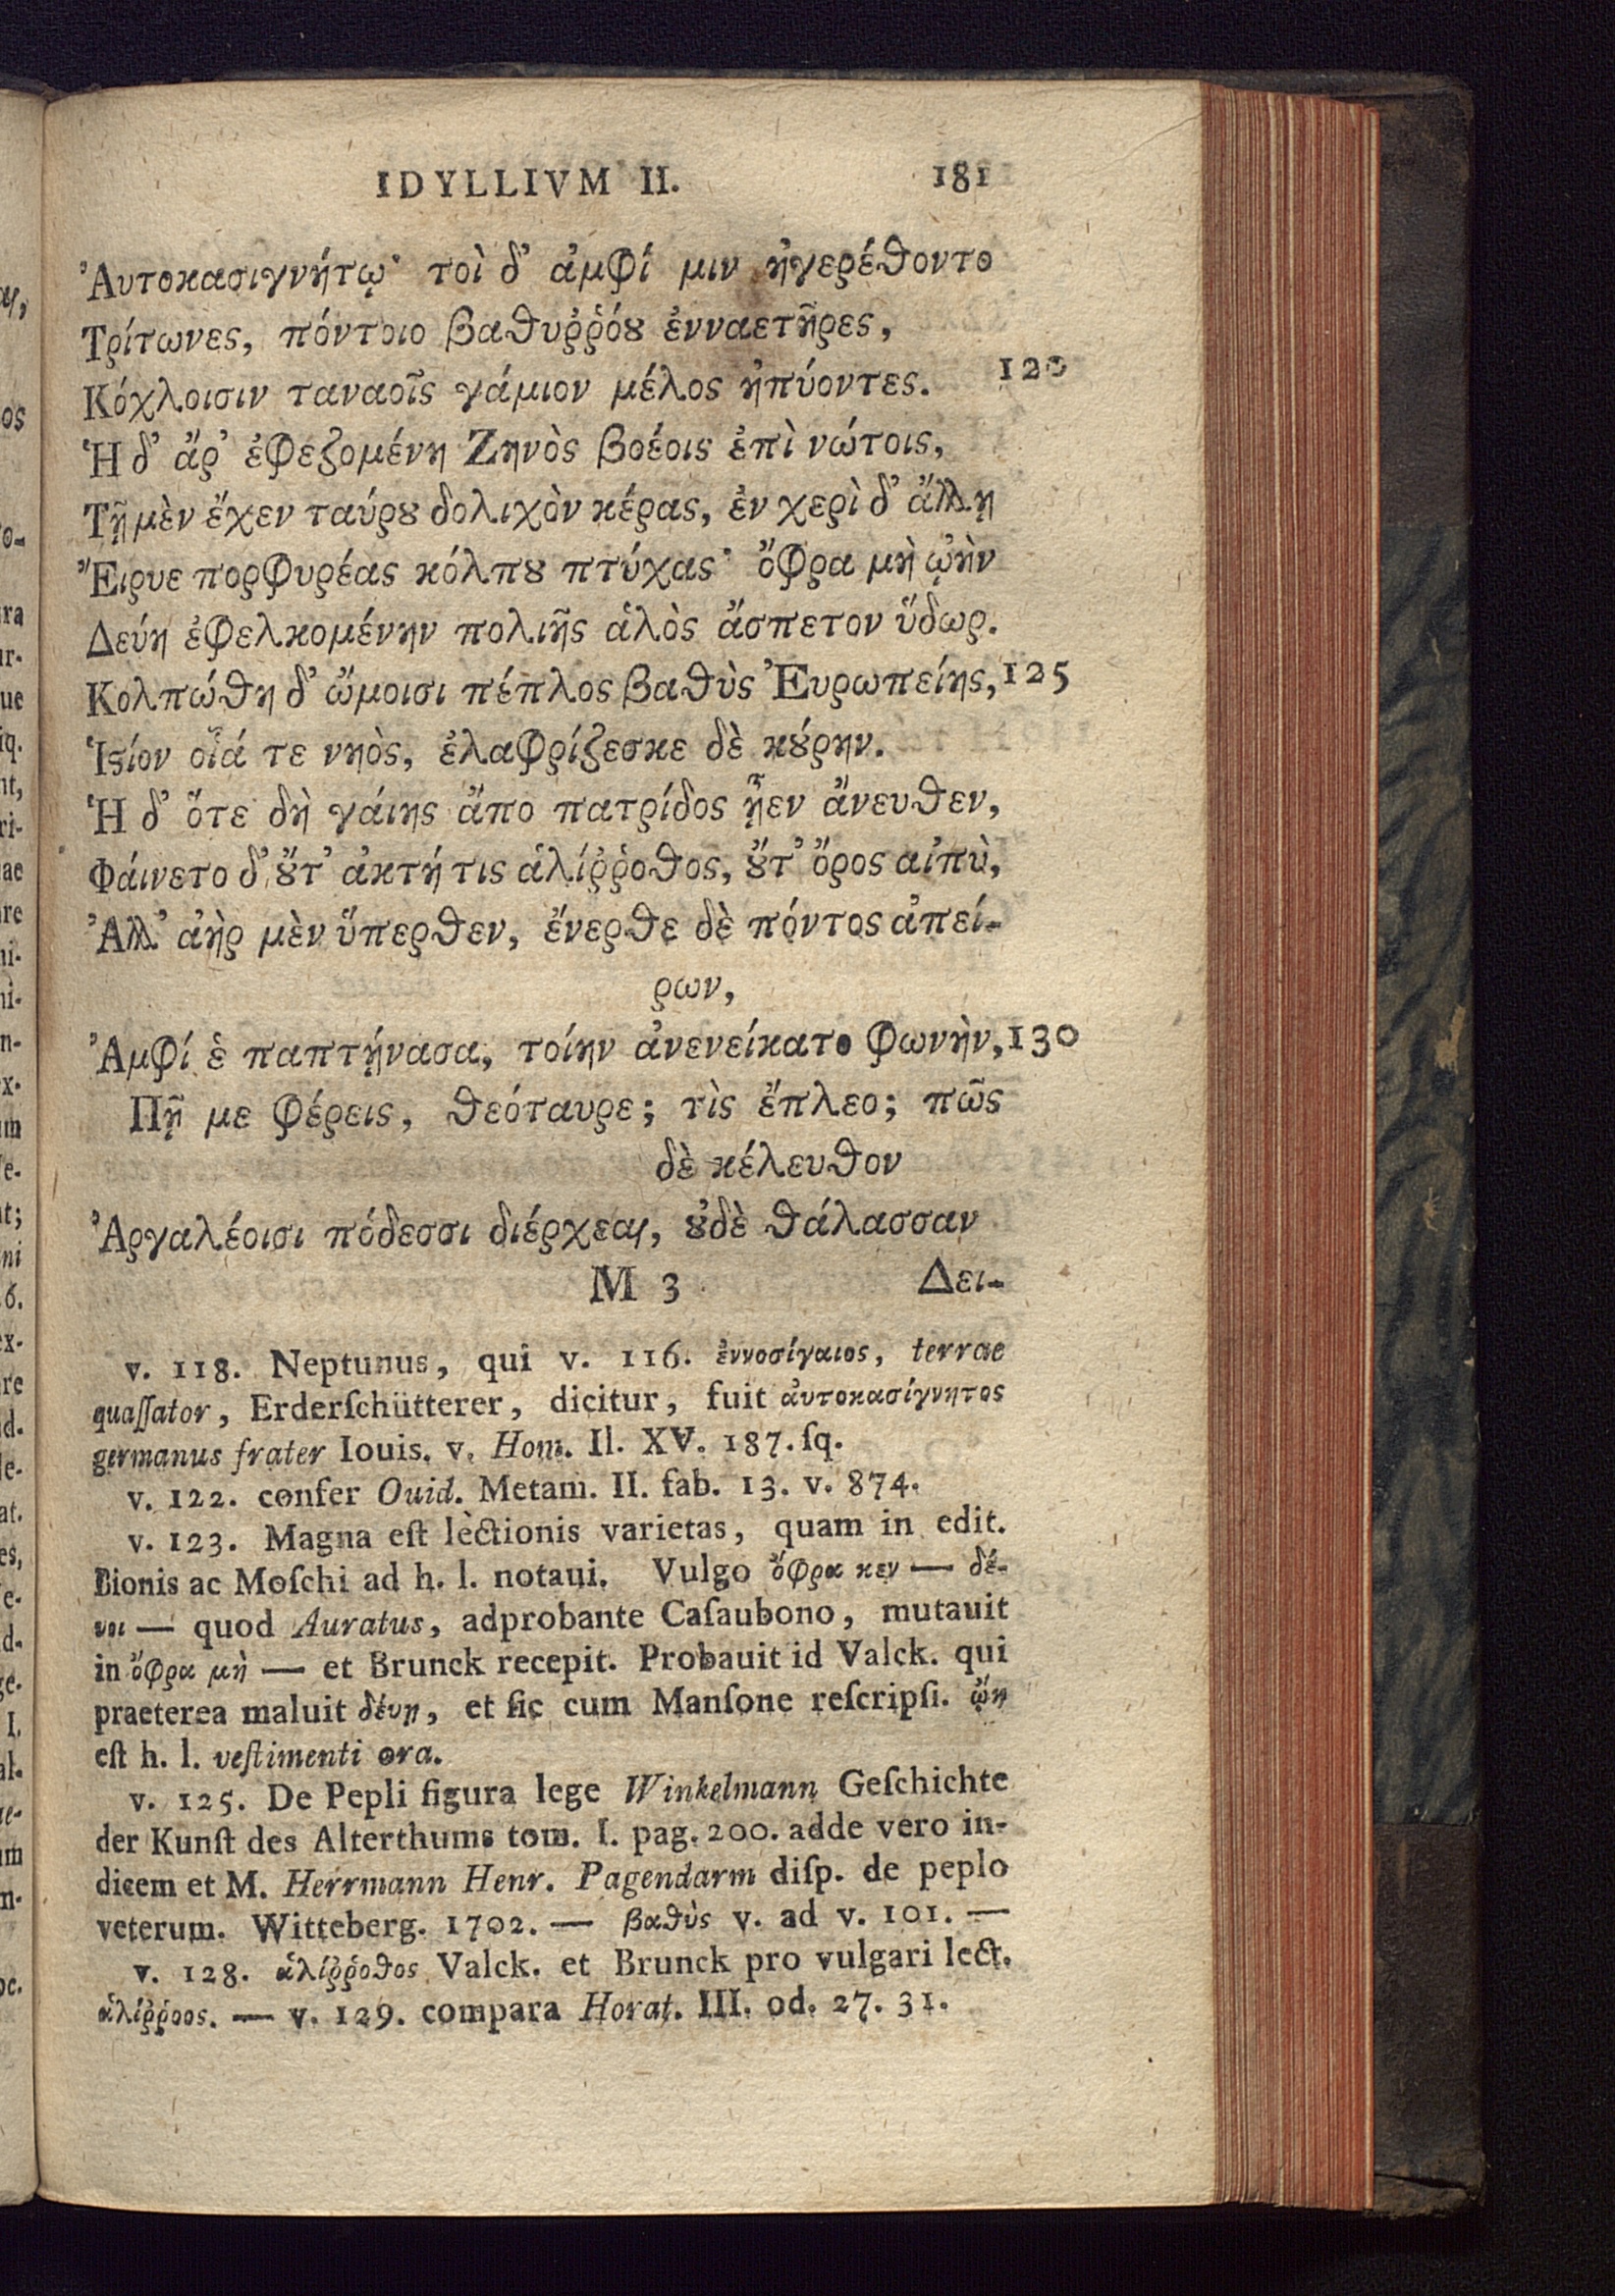 IDYLLIVM II. 181
Ἀυτοκασιγνήτῳ· τοὶ δ' ἀμφί μιν ἠγερέθοντο
Τρίτωνες, πόντοιο βαθυῤῥόȣ ἐνναετῆρες,
Κόχλοισιν ταναοῖς γάμιον μέλος ἠπύοντες. 120
Ἡ δ' ἄρ' ἐφεζομένη Ζηνὸς βοέοις ἐπὶ νώτοις,
Τῇ μὲν ἔχεν ταύρȣ δολιχὸν κέρας, ἐν χερὶ δ' ἄλλῃ
Ἔιρυε πορφυρέας κόλπȣ πτύχας· ὄφρα μὴ ᾠὴν
Δεύη ἐφελκομένην πολιῆς ἁλὸς ἄσπετον ὕδωρ.
Κολπώθη δ' ὤμοισι πέπλος βαθὺς Ἐυρωπείης, 125
Ἱϛίον οἷά τε νηὸς, ἐλαφρίζεσκε δὲ κȣ́ρην.
Ἡ δ' ὅτε δὴ γάιης ἄπο πατρίδος ᾖεν ἄνευθεν,
Φάινετο δ' ȣ̓́τ' ἀκτή τις ἁλίῤῥοθος, ȣ̓́τ' ὄρος αἰπὺ,
Ἀλλ' ἀὴρ μὲν ὕπερθεν, ἔνερθε δὲ πόντος ἀπεί-
ρων,
Ἀμφί ἑ παπτήνασα, τοίην ἀνενείκατο φωνὴν, 130
Πῆ με φέρεις, θεόταυρε; τὶς ἔπλεο; πῶς
δὲ κέλευθον
Ἀργαλέοισι πόδεσσι διέρχεαι, ȣ̓δὲ θάλασσαν
M 3 Δει-
v. 118. Neptunus, qui v. 116. ἐννοσίγαιος, terrae
quaſſator, Erderſchütterer, dicitur, fuit ἀυτοκασίγνητος
germanus frater Iouis. v. Hom. Il. XV. 187. ſq.
v. 122. confer Ouid. Metam. II. fab. 13. v. 874.
v. 123. Magna eſt lectionis varietas, quam in edit.
Bionis ac Moſchi ad h. l. notaui. Vulgo ὄφρα κεν — δέ-
υοι — quod Auratus, adprobante Caſaubono, mutauit
in ὄφρα μὴ — et Brunck recepit. Probauit id Valck. qui
praeterea maluit δέυῃ, et ſic cum Manſone reſcripſi. ᾤη
eſt h. l. veſtimenti ora.
v. 125. De Pepli figura lege Winkelmann Geſchichte
der Kunſt des Alterthums tom. I. pag. 200. adde vero in-
dicem et M. Herrmann Henr. Pagendarm diſp. de peplo
veterum. Witteberg. 1702. — βαθὺς v. ad v. 101. —
v. 128. ἁλίῤῥοθος Valck. et Brunck pro vulgari lect.
ἁλίῤῥοος. — v. 129. compara Horat. III. od. 27. 31.